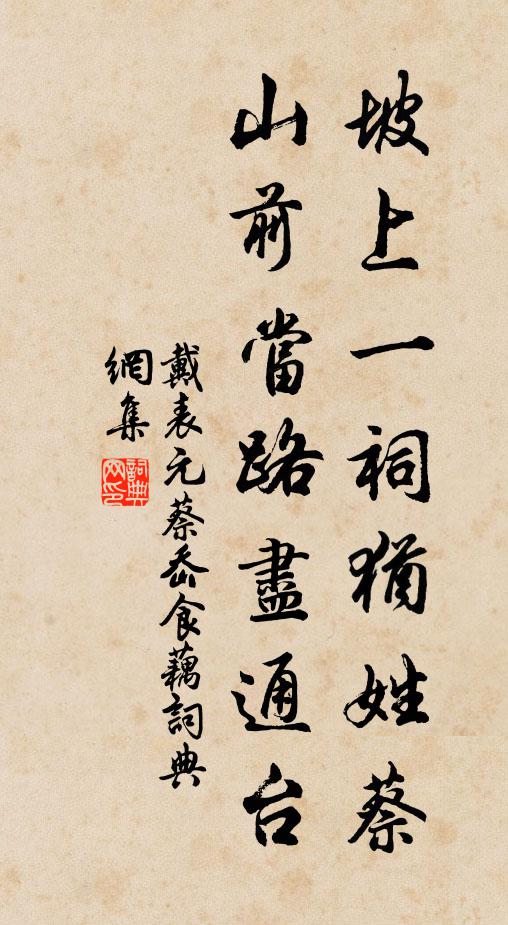 坡上一祠猶姓蔡
山前當路盡通台
戴表元蔡岙食藕詞典
網集
詞典網印